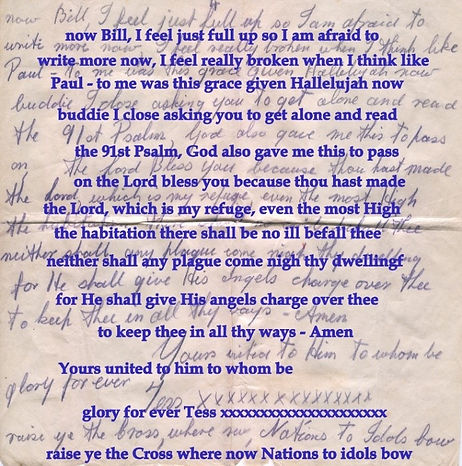 now Bill, I feel just full up so I am afraid to
write more now, I feel really broken when I think like
Paul - to me was this grace given Hallelujah now
buddie I close asking you to get alone and read
the 91st Psalm, God also gave me this to pass
on the Lord bless you because thou hast made
the Lord, which is my refuge, even the most High
the habitation there shall be no ill befall thee
neither shall any plague come nigh thy dwellingf
for He shall give His angels charge over thee
to keep thee in all thy ways - Amen
Yours united to him to whom be
glory for ever Tess xxxxxxxxxxxxxxxxxxxxx
raise ye the Cross where now Nations to idols bow